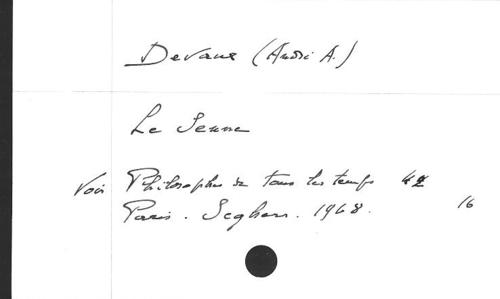 Devaux (André A.)
Le Senne
Voir Philosophes de tous les temps
Paris. Seghers. 1968. 16